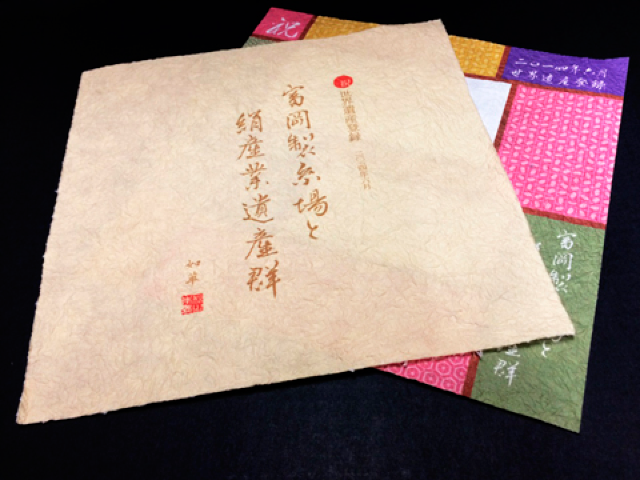 祝 世界遺産登録 二〇一四年六月
富岡製糸場と
絹産業遺産群
和華
祝
二〇一四年六月
世界遺産登録
富岡製